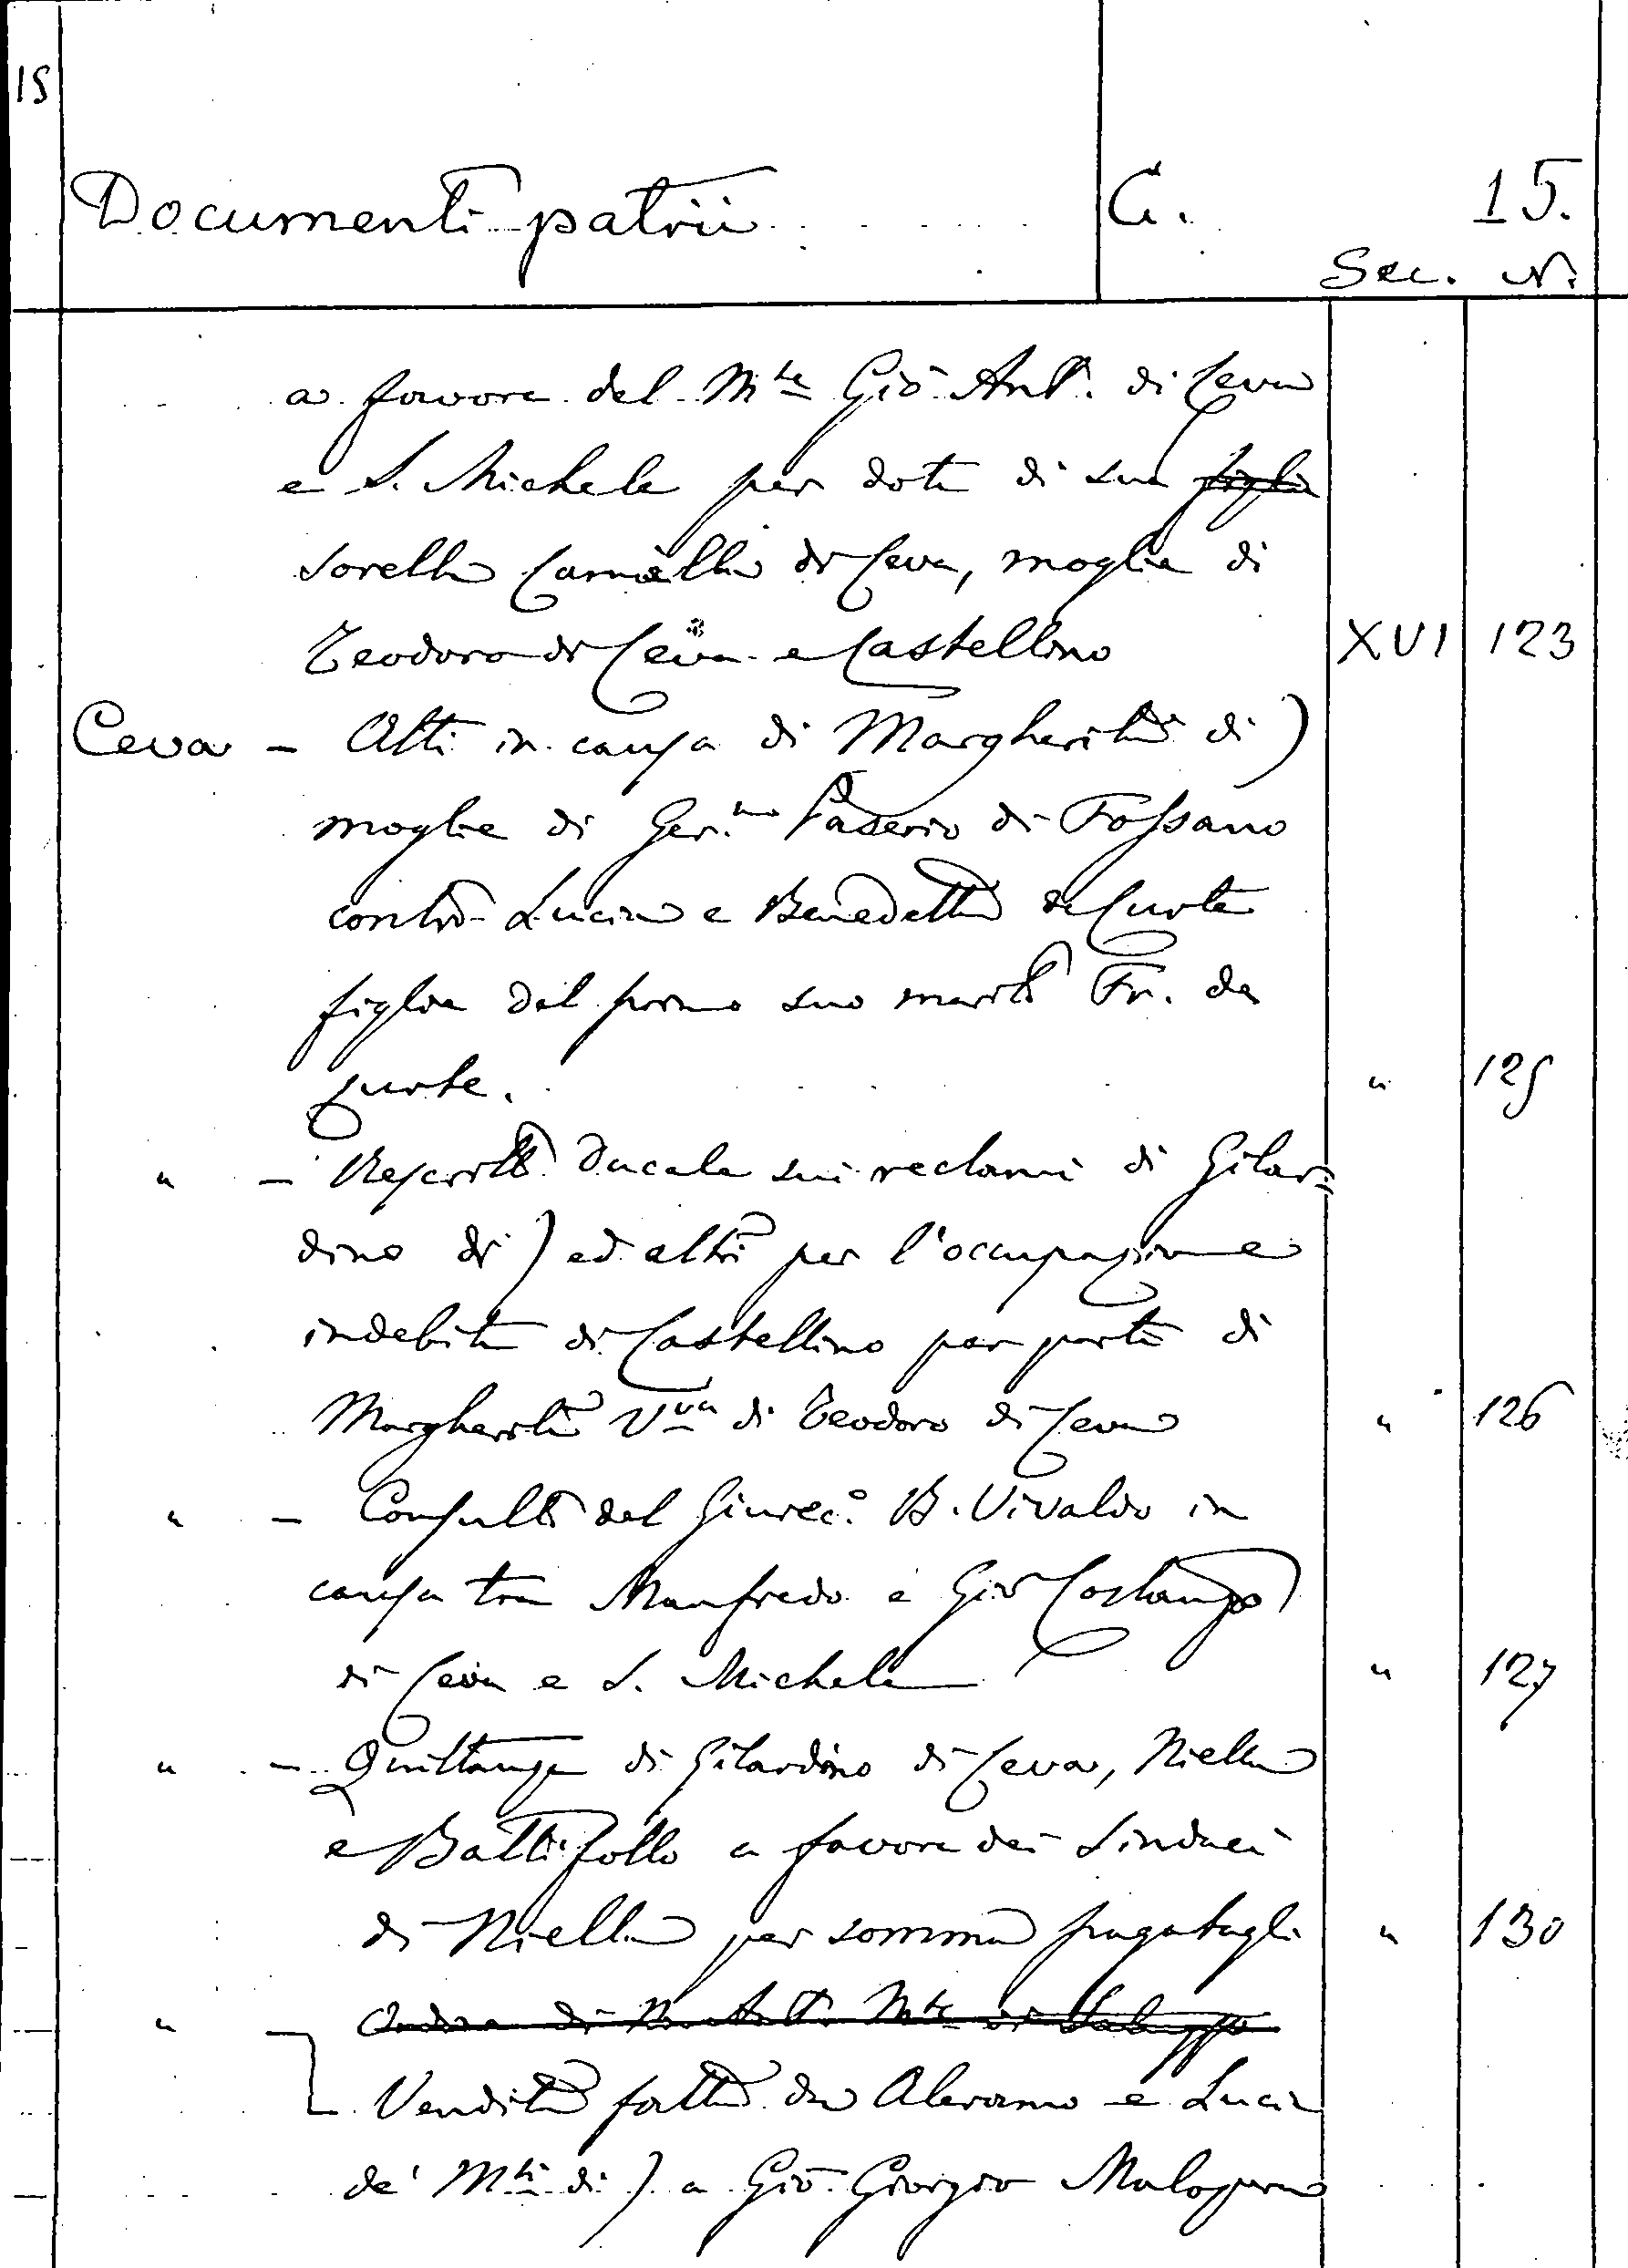 15
Documenti patrii C. 15.
Sec. N.
a favore del M.te Giō Ant. di Ceva
e S. Michele per dote di sua ~~figlia~~
sorella Camilla di Ceva, moglie di
Teodoro di Ceva e Castellino XVI 123
Ceva – Atti in causa di Margherita di )
moglie di Ger.mo Paserio di Fossano
contro Lucia e Benedetta de Curte
figlie del primo suo marito Fr. de
Curte. " 125
" – Rescritto Ducale sui reclami di Gilar=
dino di ) ed altri per l'occupazione
indebita di Castellino per parte di
Margherita V.va di Teodoro di Ceva " 126
" – Consulto del Giurec.o B. Vivaldo in
causa tra Manfredo e Giō Costanzo
di Ceva e S. Michele " 127
" – Quittanza di Gilardino di Ceva, Niella
e Battifollo a favore dei Sindaci
di Niella per somma pagatagli " 130
" – ~~di Ant. M.te di Saluzzo~~
Vendita fatta da Aleramo e Lucia
de' M.ti di ) a Giō Giorgio